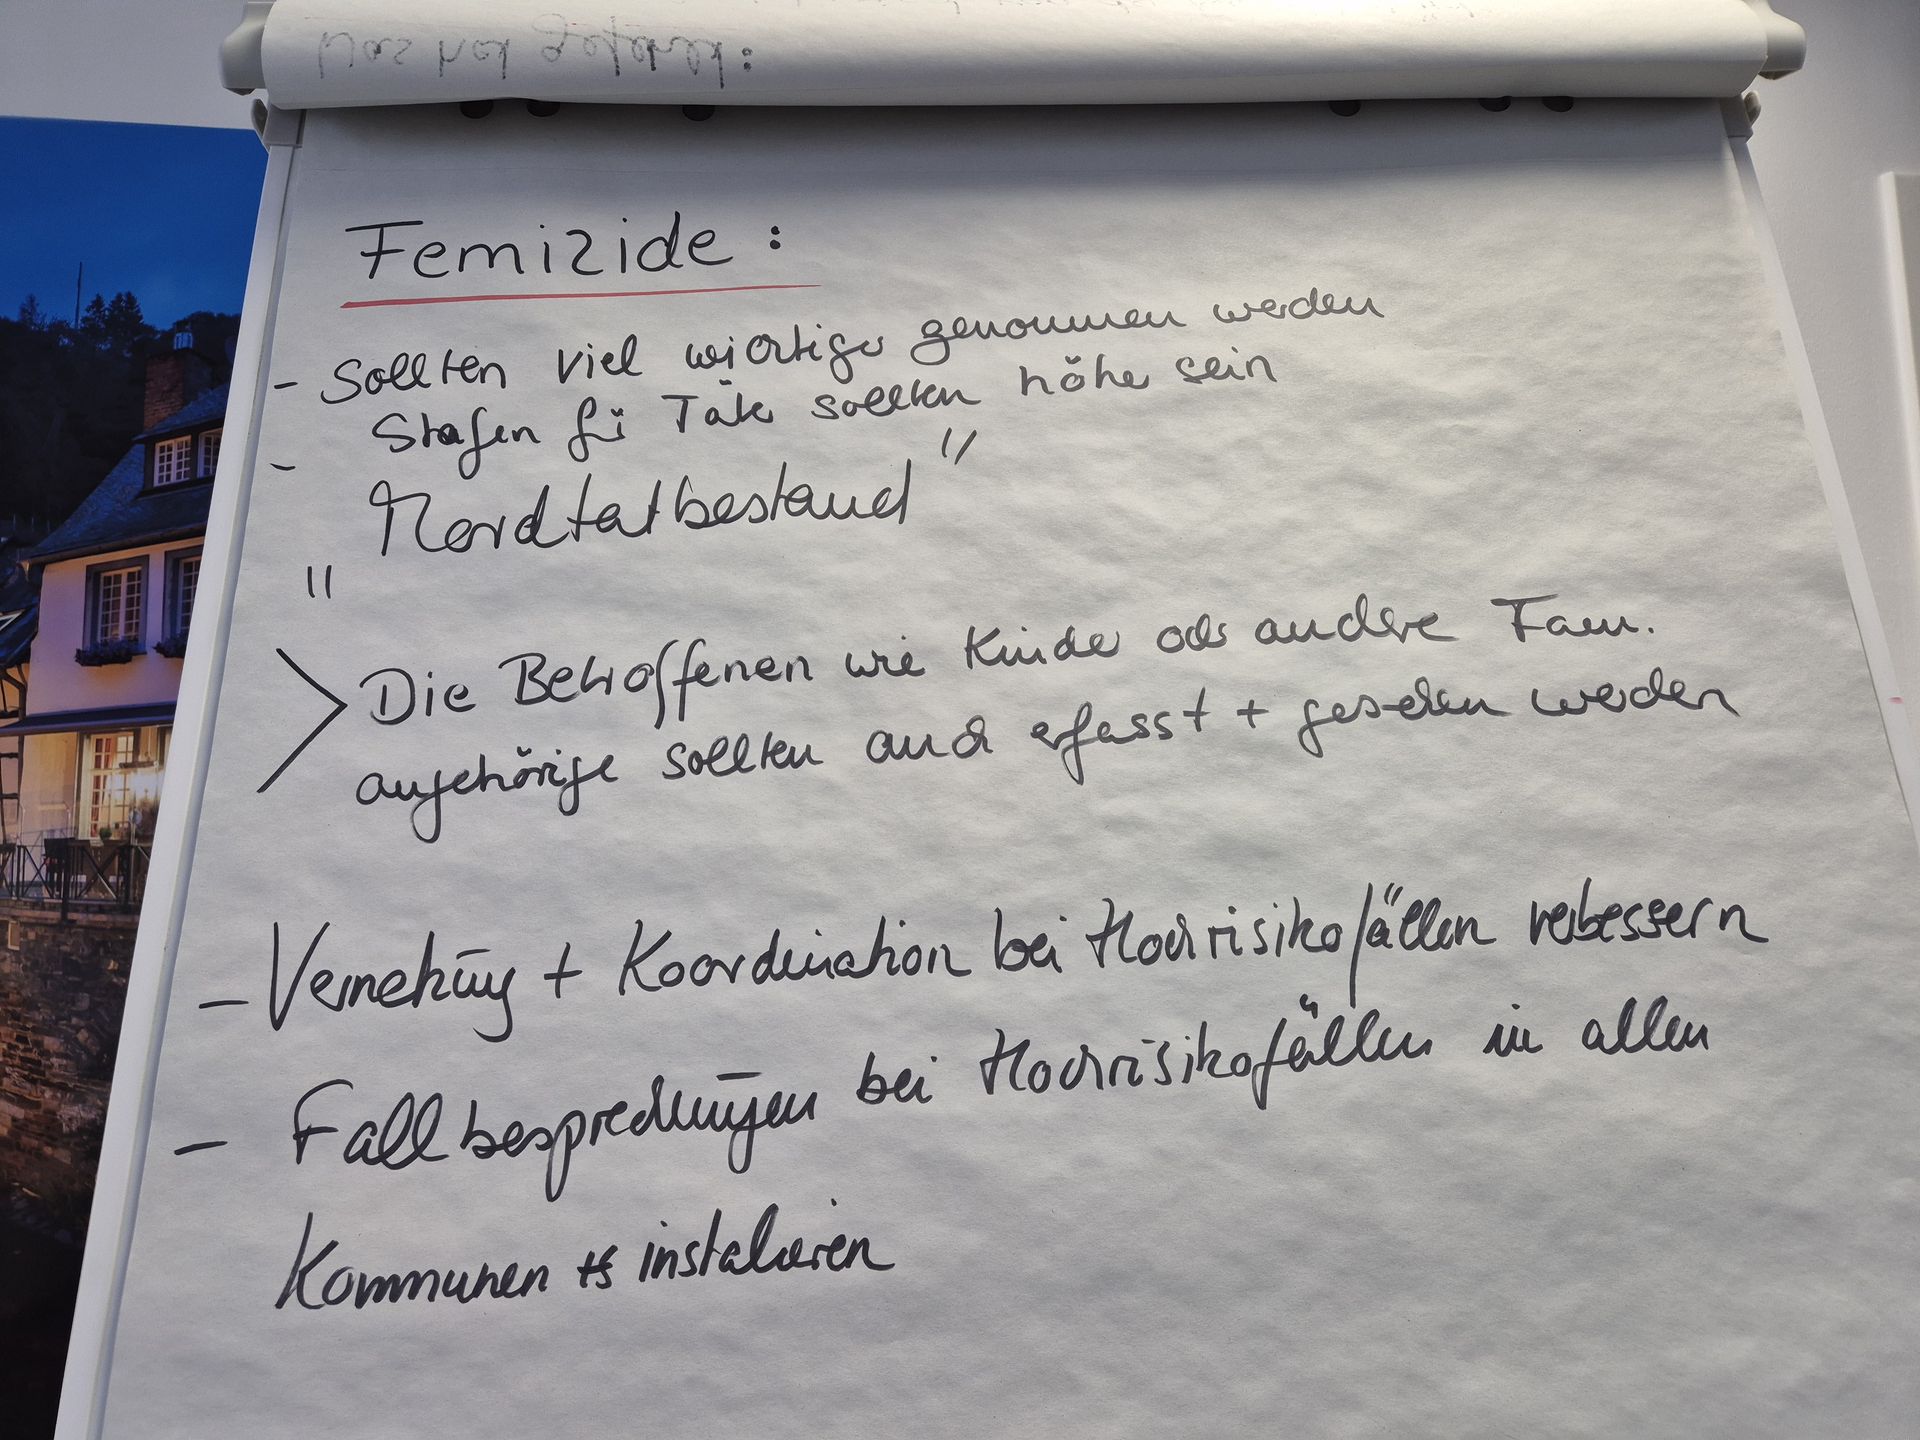 Was hat gefehlt:
Femizide:
- Sollten viel wichtiger genommen werden
- Strafen für Täter sollten höher sein
" Mordtatbestand "
> Die Betroffenen wie Kinder oder andere Fam.
angehörige sollten auch erfasst + gesehen werden
- Vernetzung + Koordination bei Hochrisikofällen verbessern
- Fallbesprechungen bei Hochrisikofällen in allen
Kommunen instalieren